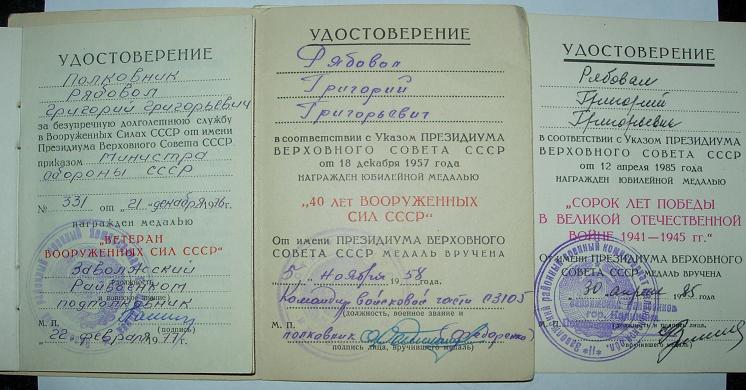 УДОСТОВЕРЕНИЕ
Полковник
Рябовол
Григорий Григорьевич
за безупречную долголетнюю службу
в Вооруженных Силах СССР от имени
Президиума Верховного Совета СССР
приказом Министра
обороны СССР
№ 331 от „21“ декабря 1976 г.
награжден медалью
„ВЕТЕРАН
ВООРУЖЕННЫХ СИЛ СССР“
Заволжский
(должность
Райвоенком
и воинское звание)
подполковник
М. П. (подпись)
„22“ февраля 1977 г.
УДОСТОВЕРЕНИЕ
Рябовол
Григорий
Григорьевич
в соответствии с Указом ПРЕЗИДИУМА
ВЕРХОВНОГО СОВЕТА СССР
от 18 декабря 1957 года
НАГРАЖДЕН ЮБИЛЕЙНОЙ МЕДАЛЬЮ
„40 ЛЕТ ВООРУЖЕННЫХ
СИЛ СССР“
От имени ПРЕЗИДИУМА ВЕРХОВНОГО
СОВЕТА СССР МЕДАЛЬ ВРУЧЕНА
5 ноября 1958 года.
Командир войсковой части 13105
(должность, военное звание и
М. П.
полковник (Федоренко)
подпись лица, вручившего медаль)
УДОСТОВЕРЕНИЕ
Рябовол
Григорий
Григорьевич
в соответствии с Указом ПРЕЗИДИУМА
ВЕРХОВНОГО СОВЕТА СССР
от 12 апреля 1985 года
НАГРАЖДЕН ЮБИЛЕЙНОЙ МЕДАЛЬЮ
„СОРОК ЛЕТ ПОБЕДЫ
В ВЕЛИКОЙ ОТЕЧЕСТВЕННОЙ
ВОЙНЕ 1941—1945 гг.“
От имени ПРЕЗИДИУМА ВЕРХОВНОГО
СОВЕТА СССР МЕДАЛЬ ВРУЧЕНА
30 апреля 1985 г.
(должность и подпись лица,
М. П. вручившего медаль)